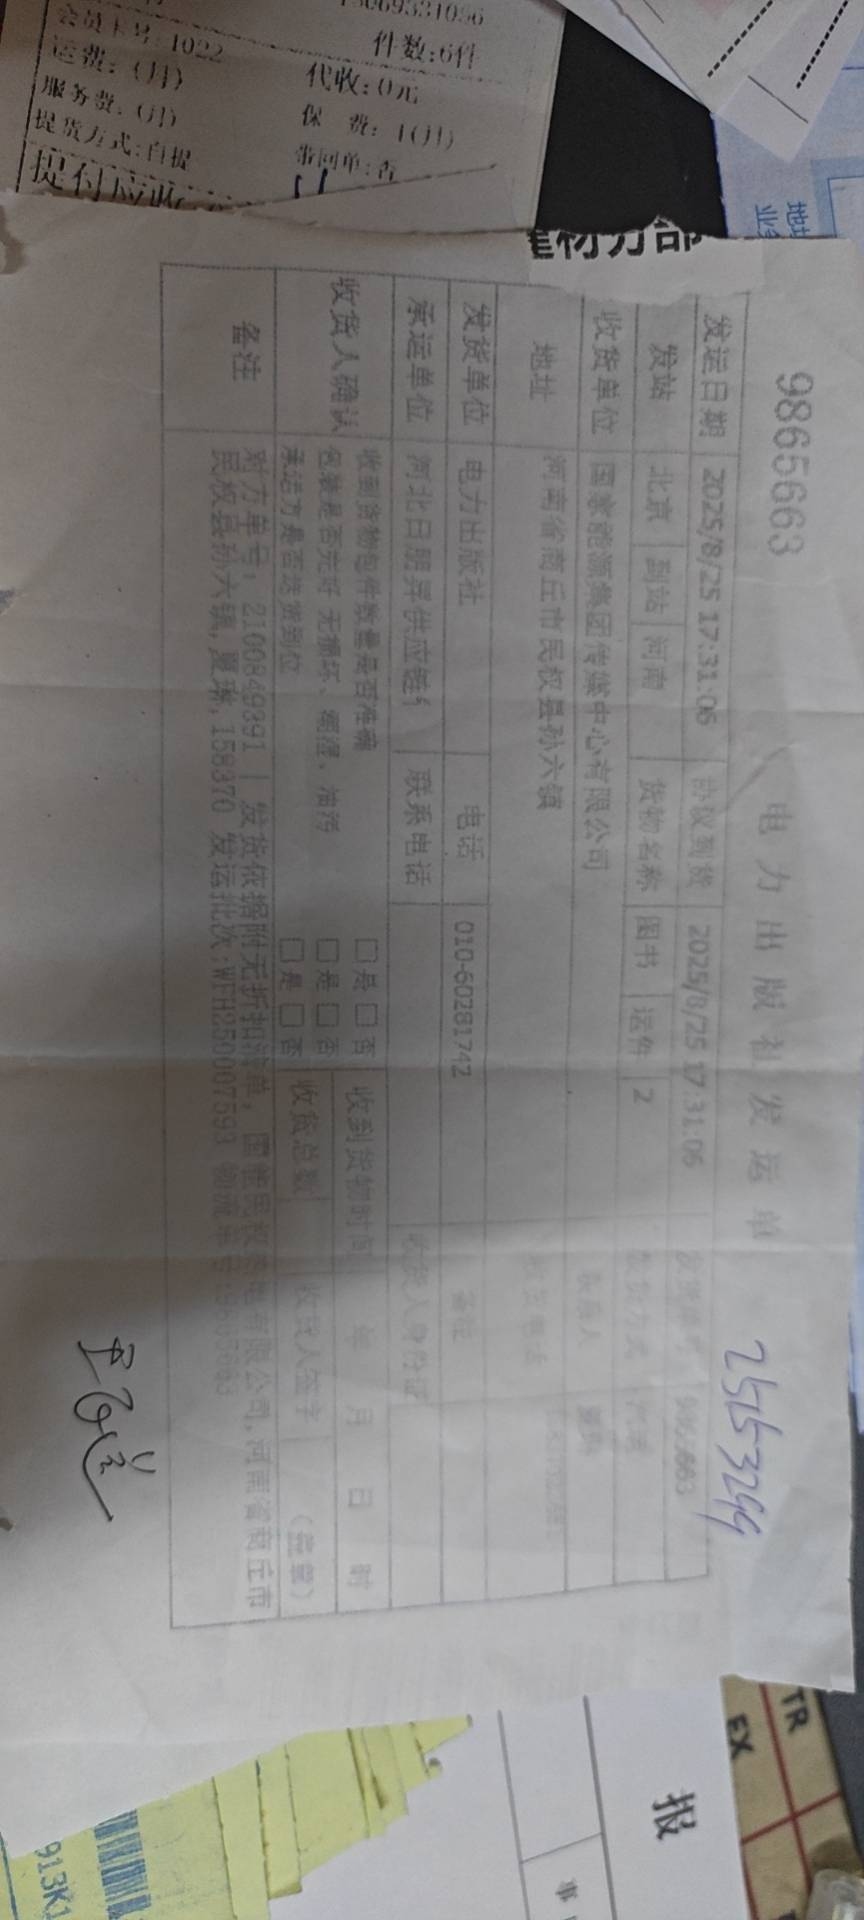 件数:6件
会员卡号:1022
运费: (月)
代收:0元
服务费: (月)
保 费: 1(月)
提货方式:自提
带回单:否
提付应收
建材分部
9865663
电力出版社发运单
2515329
发运日期 2025/8/25 17:31:06 协议到货 2025/8/25 17:31:06
发站 北京 到站 河南 货物名称 图书 运件 2
收货单位 国家能源集团传媒中心有限公司 联系人
地址 河南省商丘市民权县孙六镇 收货电话
发货单位 电力出版社 电话 010-60281742 备注
承运单位 河北日朋昇供应链 联系电话 收货人身份证
收货人确认 收到货物包件数量是否准确 □是 □否 收到货物时间 年 月 日 时
包装是否完好 无损坏、潮湿、油污 □是 □否
承运方是否送货到位 □是 □否 收货总数 收货人签字 (盖章)
备注 对方单号: 2100849391 | 发货依据附无折扣清单, 国能民权热电有限公司, 河南省商丘市
民权县孙六镇, 夏琳, 158370 发运批次:WFH250007593 物流单号:9865663
报
TR
EX
913K1